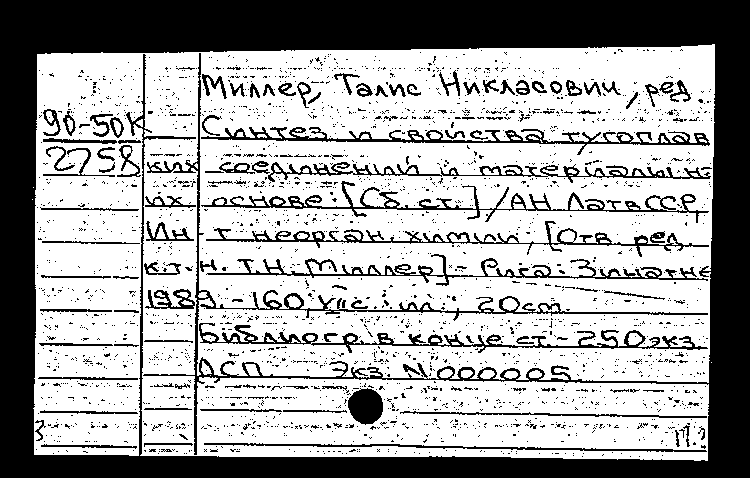 Миллер, Талис Никласович, ред.
90-50К Синтез и свойства тугоплав
2758 ких соединений и материалы н
их основе: [Сб. ст.] / АН ЛатвССР,
Ин-т неорган. химии; [Отв. ред.
к.т.н. Т.Н. Миллер] - Рига: Зинатне
1989. - 160, VII с.: ил.; 20 cm.
Библиогр. в конце ст. - 250 экз.
ДСП. Экз. N 000005